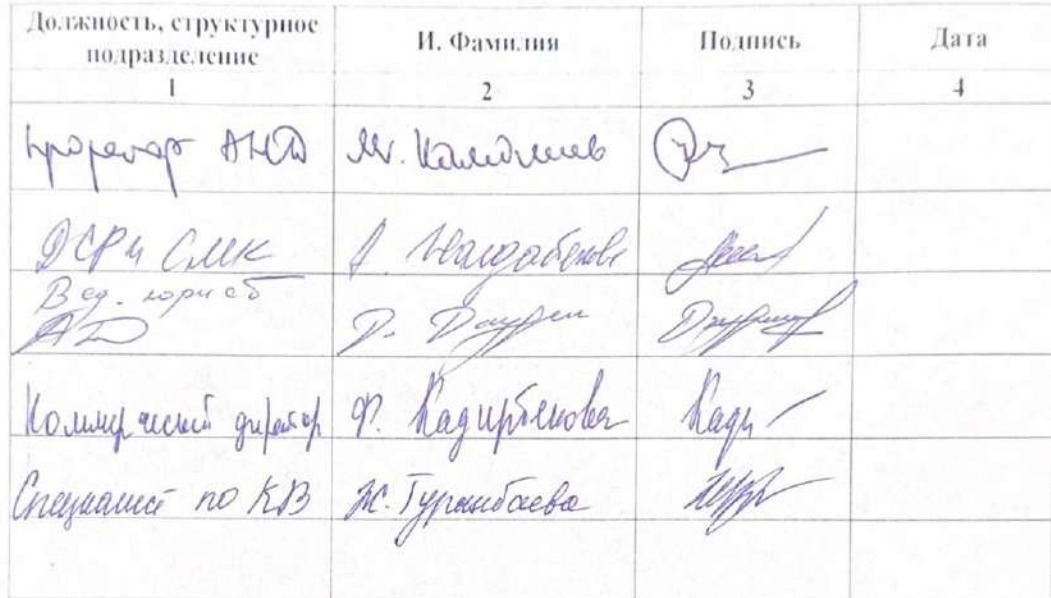 Должность, структурное подразделение И. Фамилия Подпись Дата
1 2 3 4
Проректор М.
ДСР и СМК А.
Вед. юрист Д. Даурен
АД
Коммерческий директор Ф. Кадирбекова Кады
Специалист по КВ Ж. Турымбаева